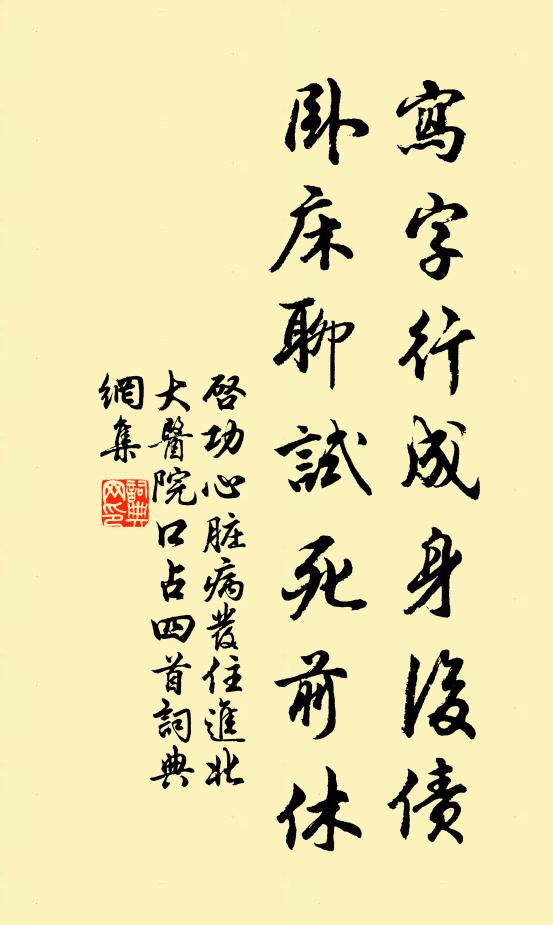 寫字行成身後債
卧床聊試死前休
啓功心脏病發住進北
大醫院口占四首詞典
網集
詞典網印